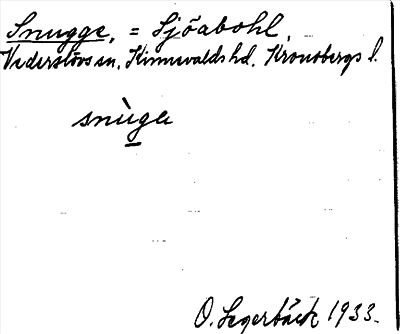 Snugge, = Sjöabohl.
Vederslövs sn. Kinnevalds hd. Kronobergs l.
snùga
O. Segerbäck 1933.